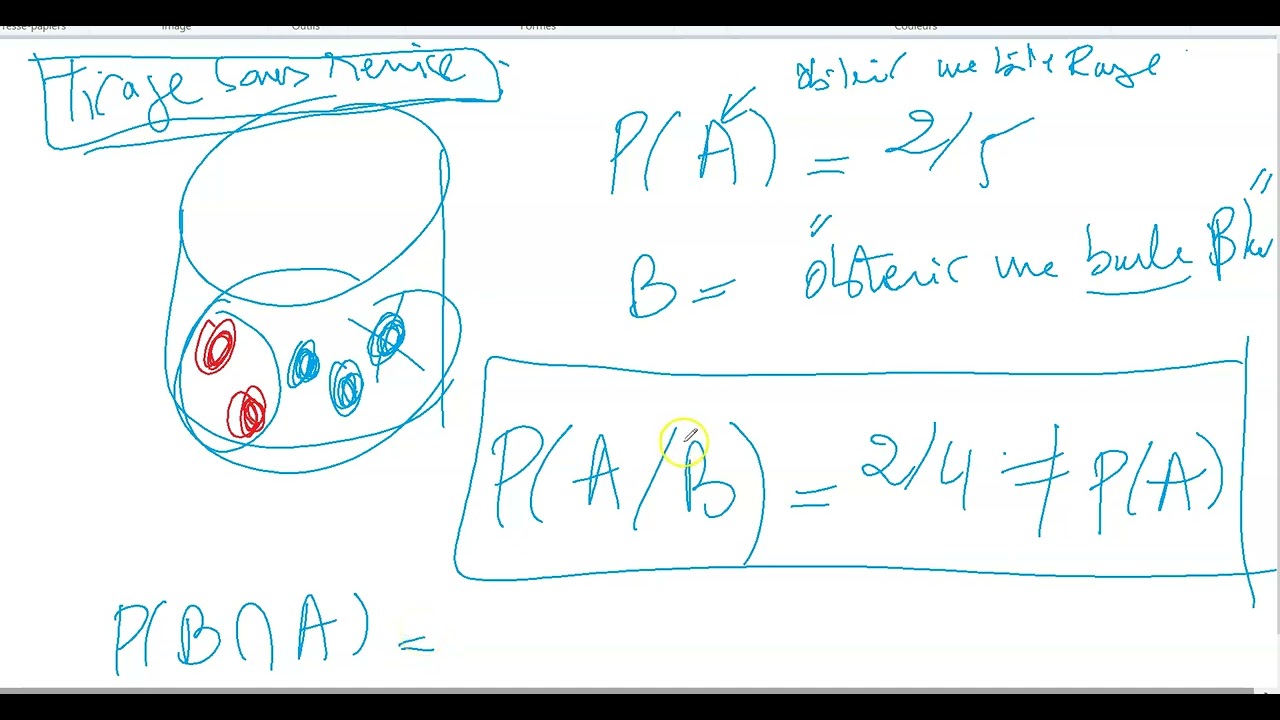 Presse-papiers Image Outils Formes Couleurs
Tirage sans remise
obtenir une boule Rouge
P(A) = 2/5
B = "obtenir une boule Bleu"
P(A/B) = 2/4 ≠ P(A)
P(B∩A) =